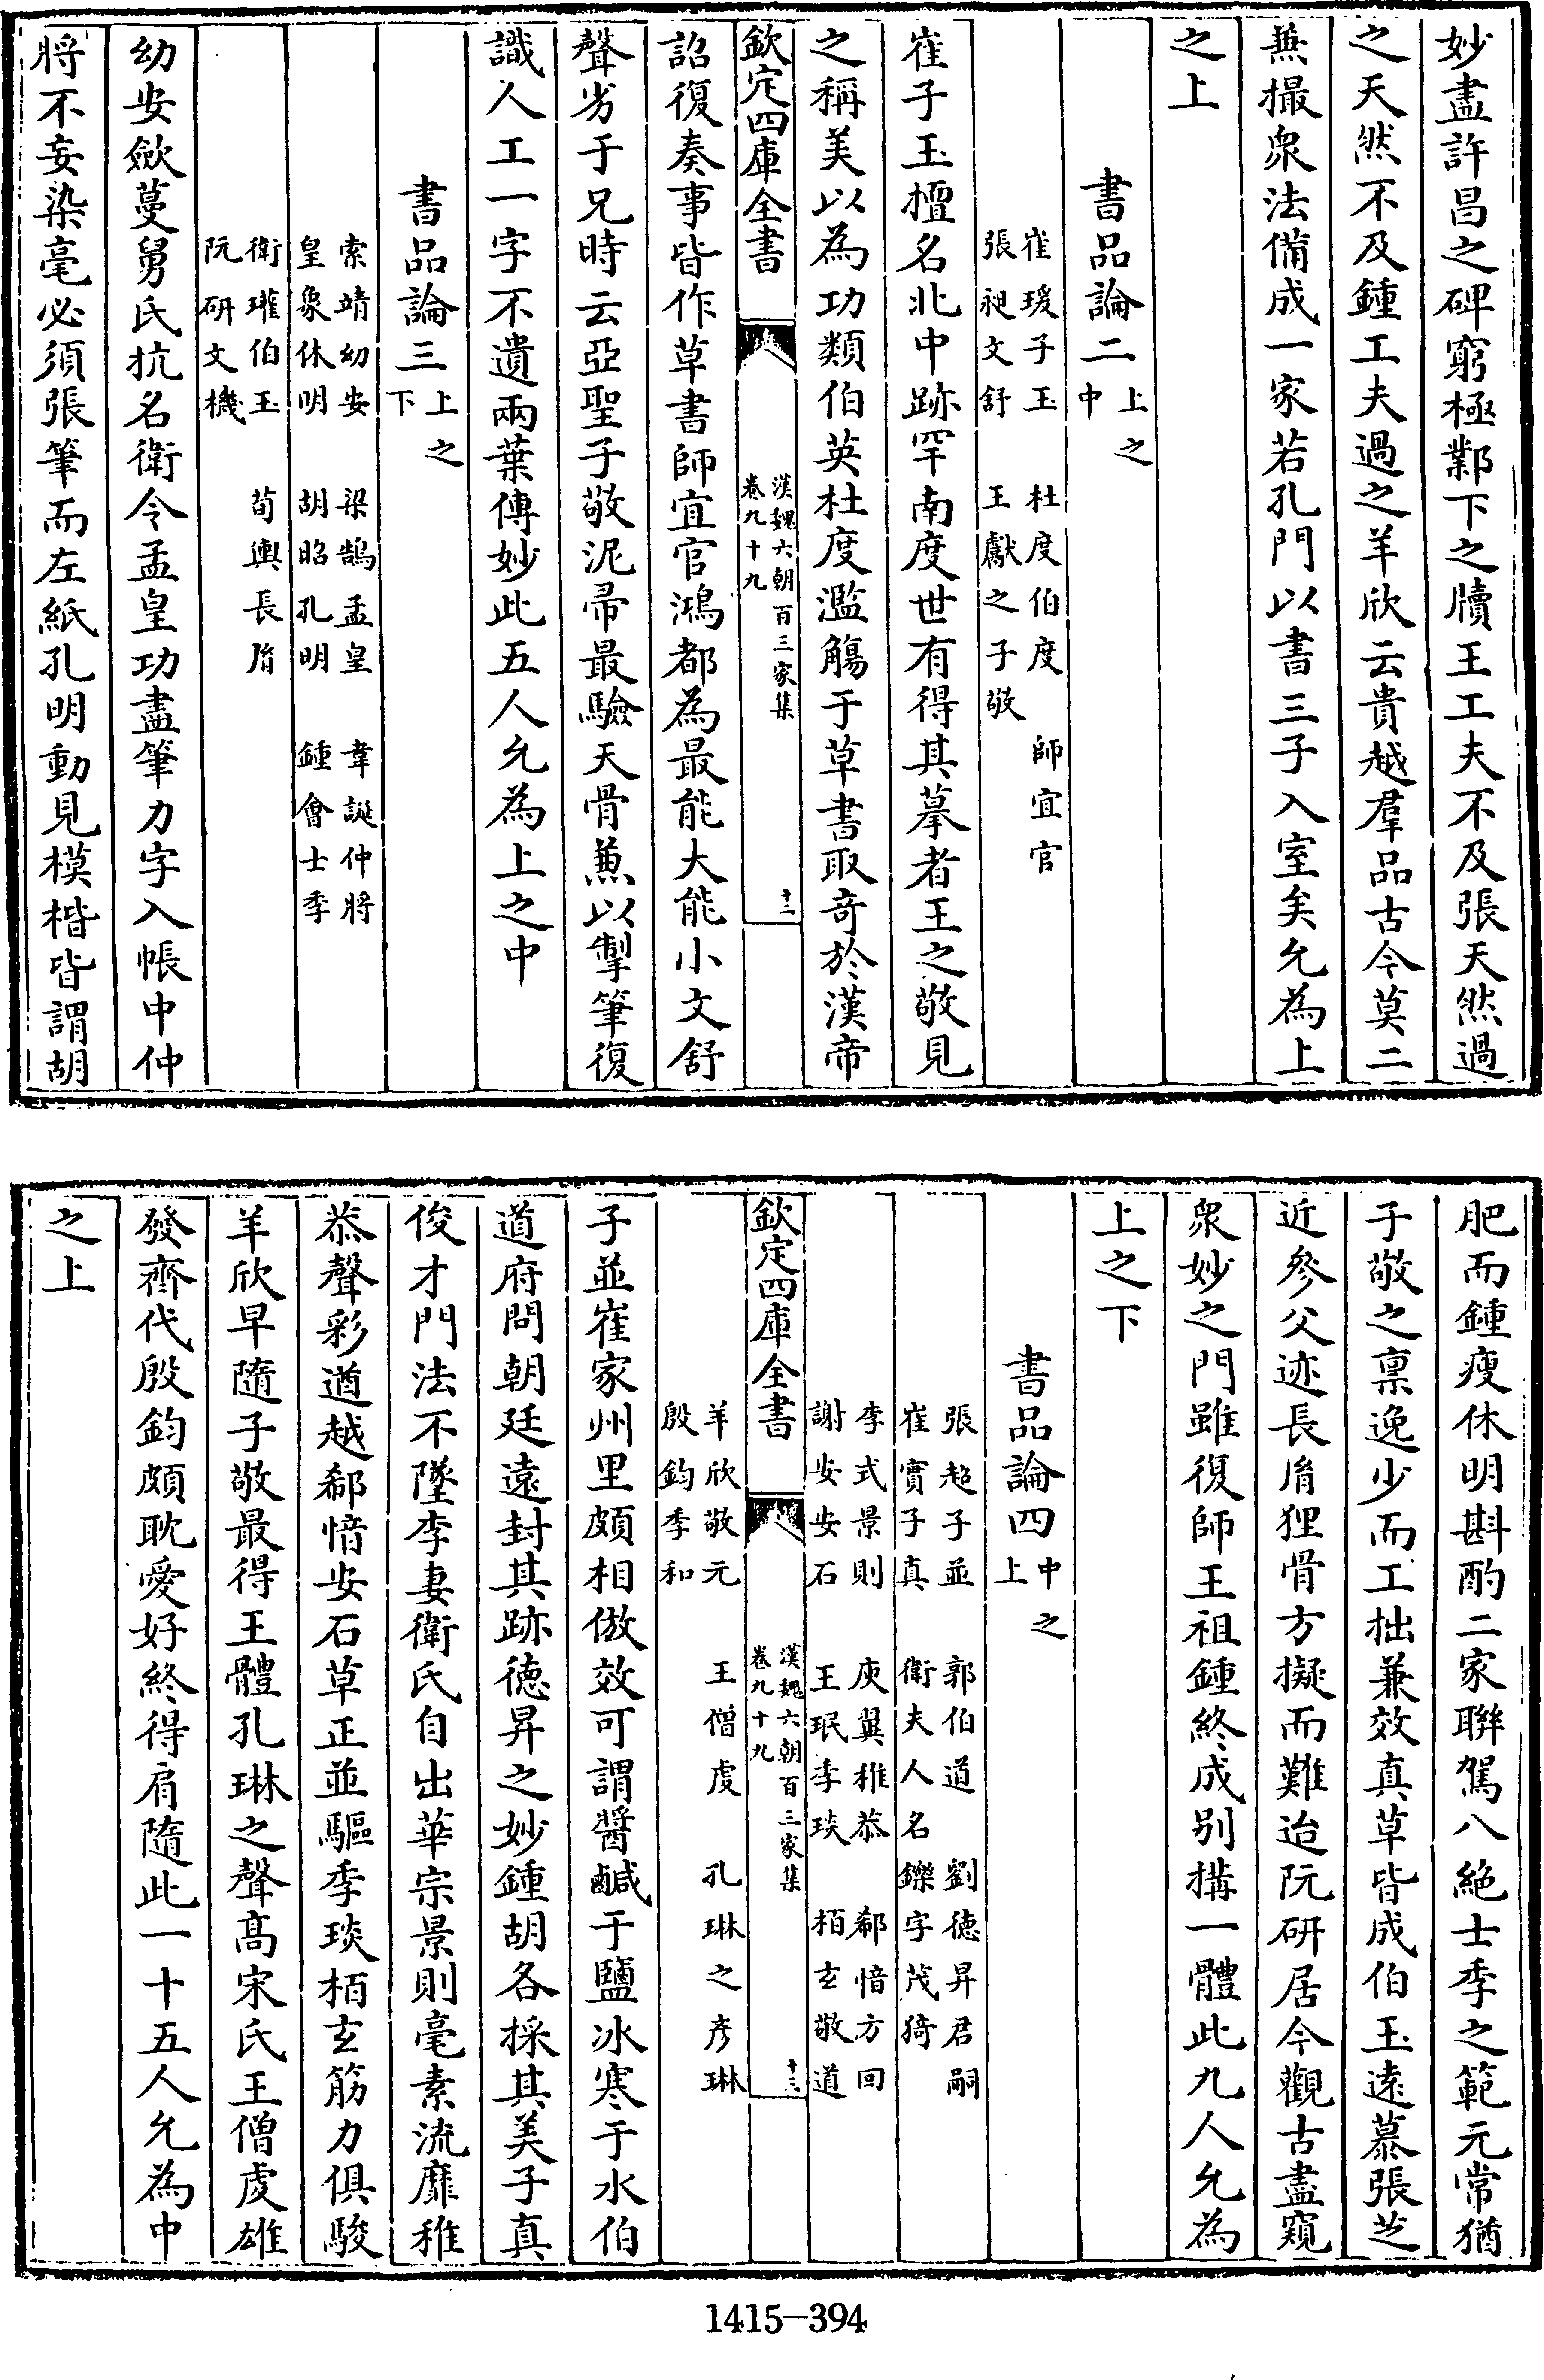 妙盡許昌之碑窮極鄴下之牘王工夫不及張天然過
之天然不及鍾工夫過之羊欣云貴越羣品古今莫二
無撮衆法備成一家若孔門以書三子入室矣允為上
之上
書品論二上之中
崔瑗子玉 杜度伯度 師宜官
張昶文舒 王獻之子敬
崔子玉擅名北中跡罕南度世有得其摹者王之敬見
之稱美以為功類伯英杜度濫觴于草書取奇於漢帝
欽定四庫全書
漢魏六朝百三家集
卷九十九
十二
詔復奏事皆作草書師宜官鴻都為最能大能小文舒
聲劣于兄時云亞聖子敬泥帚最驗天骨兼以掣筆復
識人工一字不遺兩葉傳妙此五人允為上之中
書品論三上之下
索靖幼安 梁鵠孟皇 韋誕仲將
皇象休明 胡昭孔明 鍾會士季
衛瓘伯玉 荀輿長胤
阮研文機
幼安歛蔓舅氏抗名衛令孟皇功盡筆力字入帳中仲
將不妄染毫必須張筆而左紙孔明動見模楷皆謂胡
肥而鍾瘦休明斟酌二家聨駕八絶士季之範元常猶
子敬之稟逸少而工拙兼效真草皆成伯玉遠慕張芝
近參父迹長胤狸骨方擬而難迨阮研居今觀古盡窺
衆妙之門雖復師王祖鍾終成别搆一體此九人允為
上之下
書品論四中之上
張超子並 郭伯道 劉德昇君嗣
崔寔子真 衛夫人名鑠字茂猗
李式景則 庾翼稚恭 郗愔方回
謝安安石 王珉季琰 栢玄敬道
欽定四庫全書
漢魏六朝百三家集
卷九十九
十三
羊欣敬元 王僧虔 孔琳之彦琳
殷鈞季和
子並崔家州里頗相倣效可謂醬鹹于鹽冰寒于水伯
道府問朝廷遠封其跡德昇之妙鍾胡各採其美子真
俊才門法不墜李妻衛氏自出華宗景則毫素流靡稚
恭聲彩遒越郗愔安石草正並驅季琰栢玄筋力俱駿
羊欣早隨子敬最得王體孔琳之聲髙宋氏王僧虔雄
發齊代殷鈞頗耽愛好終得肩隨此一十五人允為中
之上
1415-394